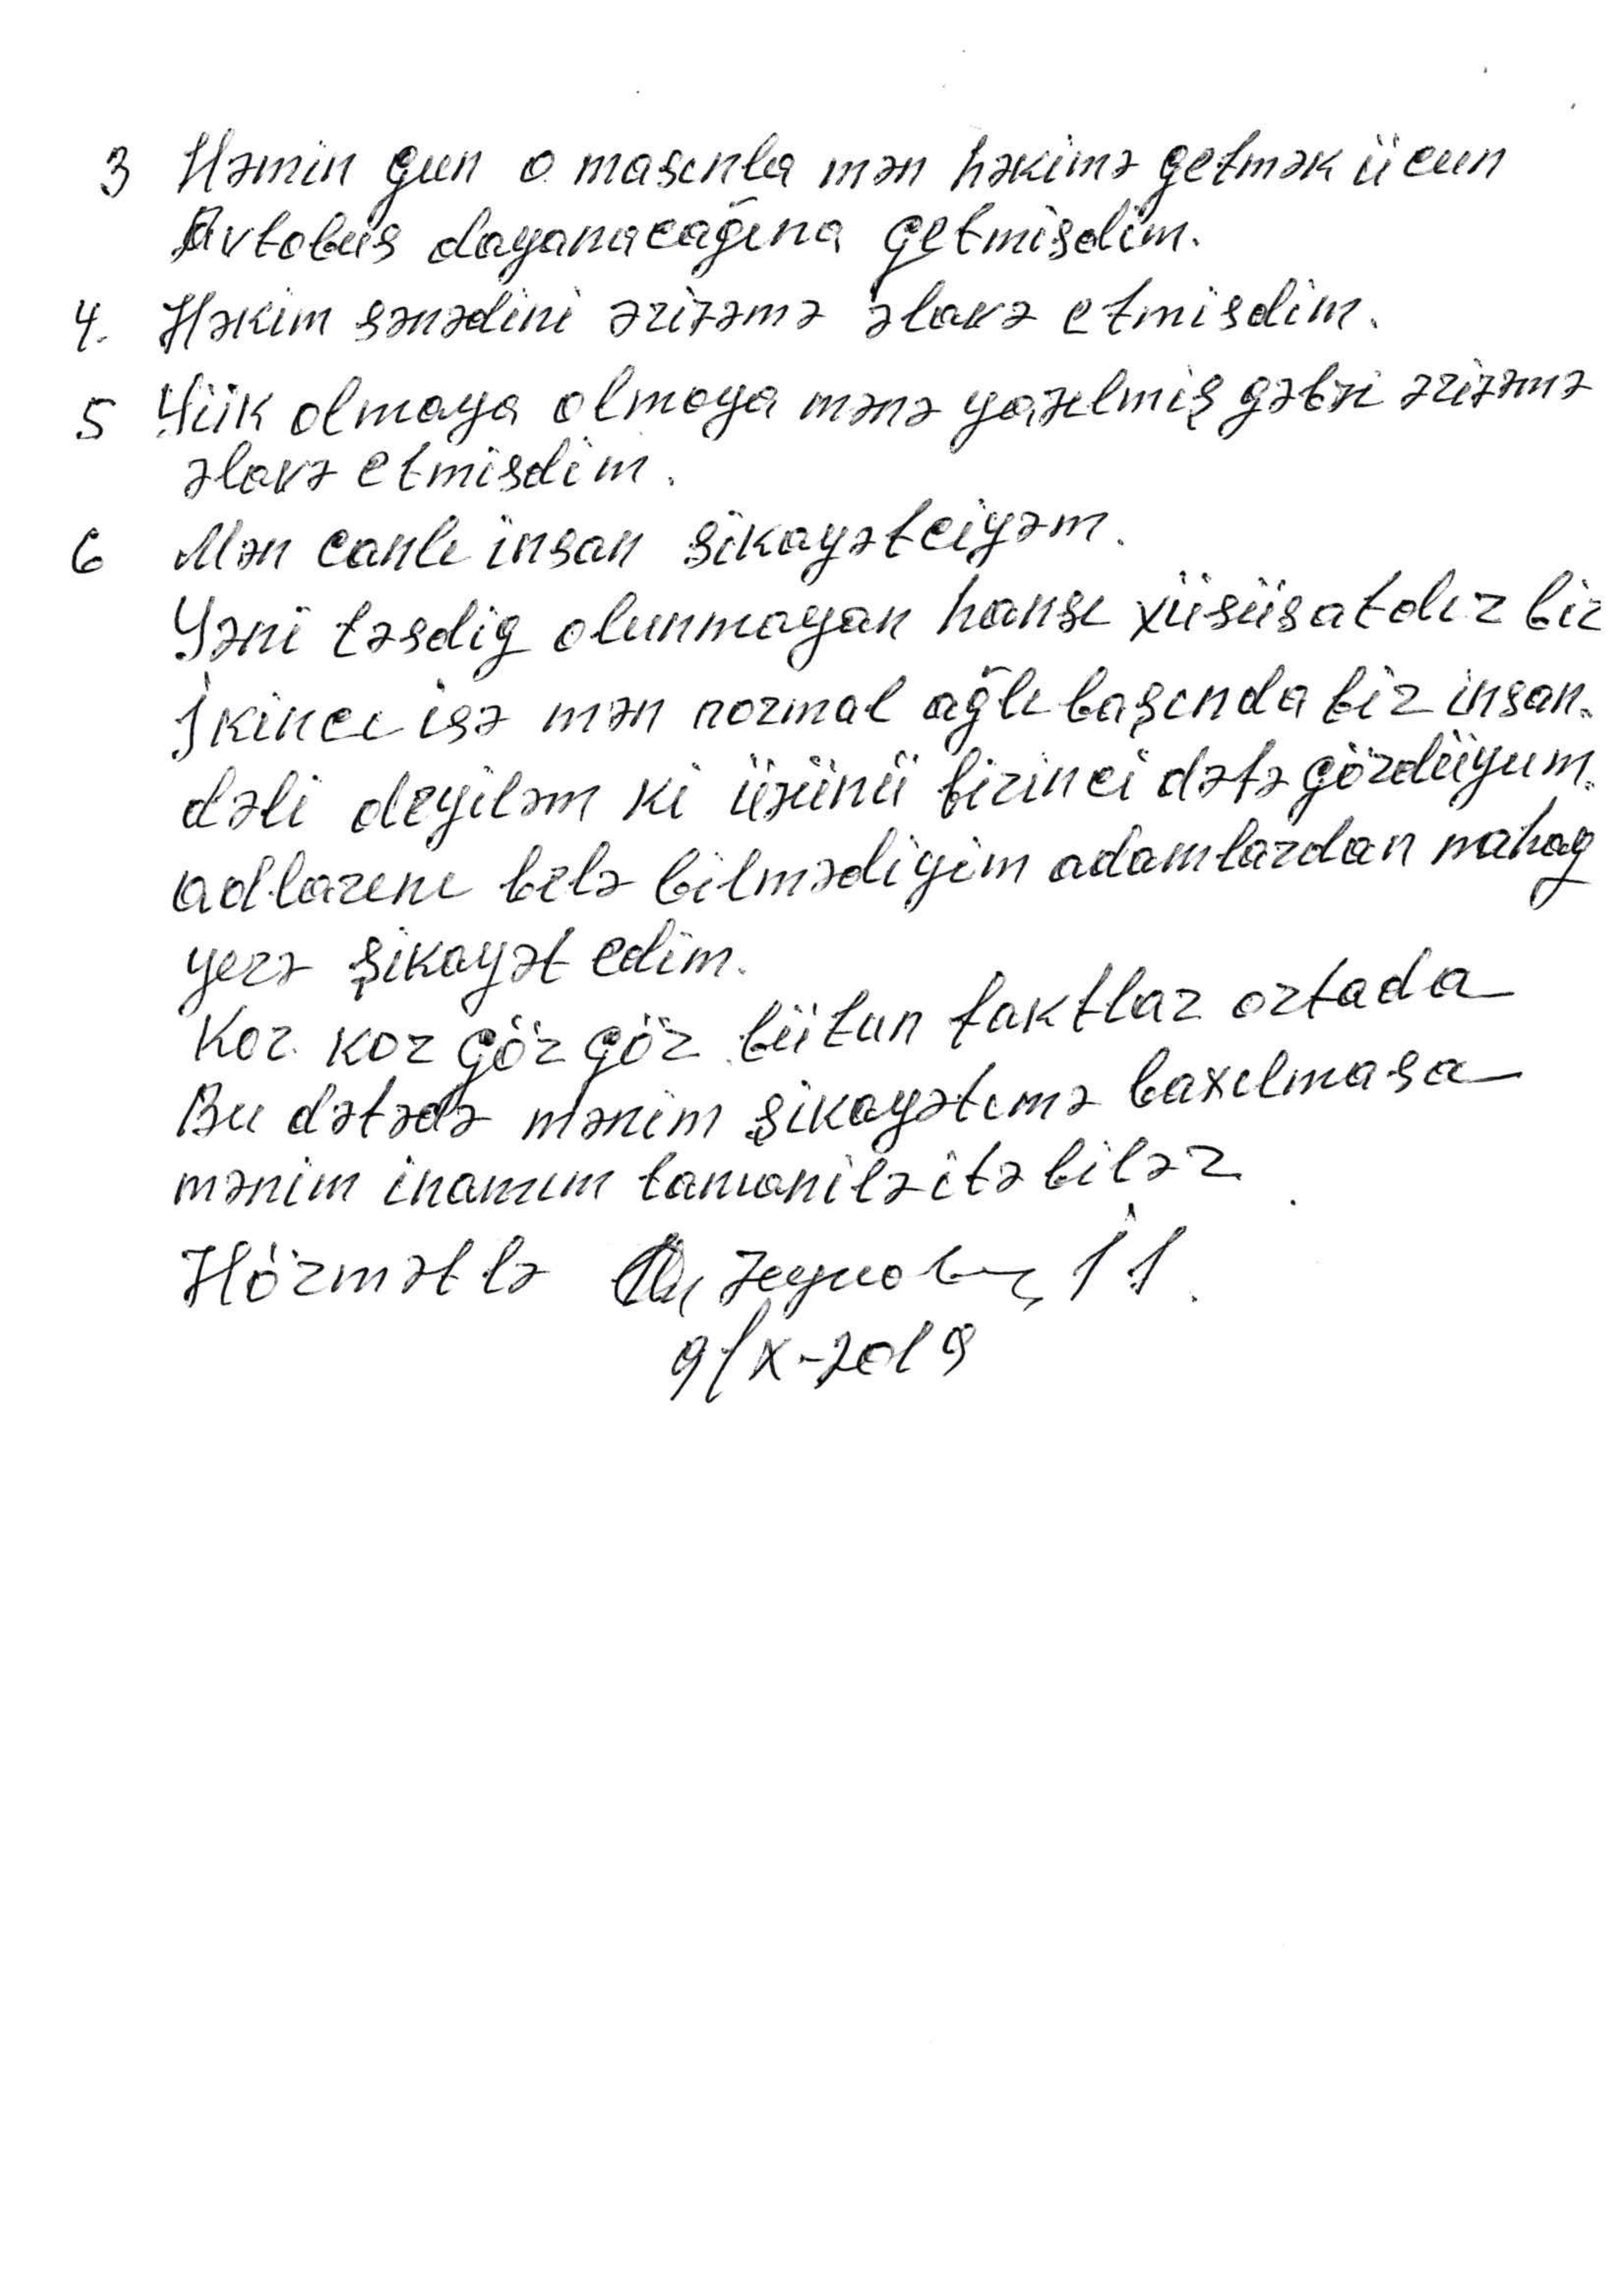 3 Həmin gun o masınla mən həkimə getmək ücun
Avtobus dayanacağına getmisdim.
4. Həkim sənədini ərizəmə əlavə etmisdim.
5 Yük olmaya olmaya mənə yazılmiş gəbzi ərizəmə
əlavə etmisdim.
6 Mən canlı insan şikayətciyəm.
Yəni təsdig olunmayan hansı xüsüsatdır bir
İkinci isə mən normal ağlı başında bir insan.
dəli deyiləm ki üzünü birinci dəfə gördüyum.
adlarını belə bilmədiyim adamlardan nahag
yerə şikayət edim.
Kor kor gör gör bütun faktlar ortada
Bu dəfədə mənim şikayətımə baxılmasa
mənim inamım tamamilə itə bilər
Hörmətlə
9/X-2019